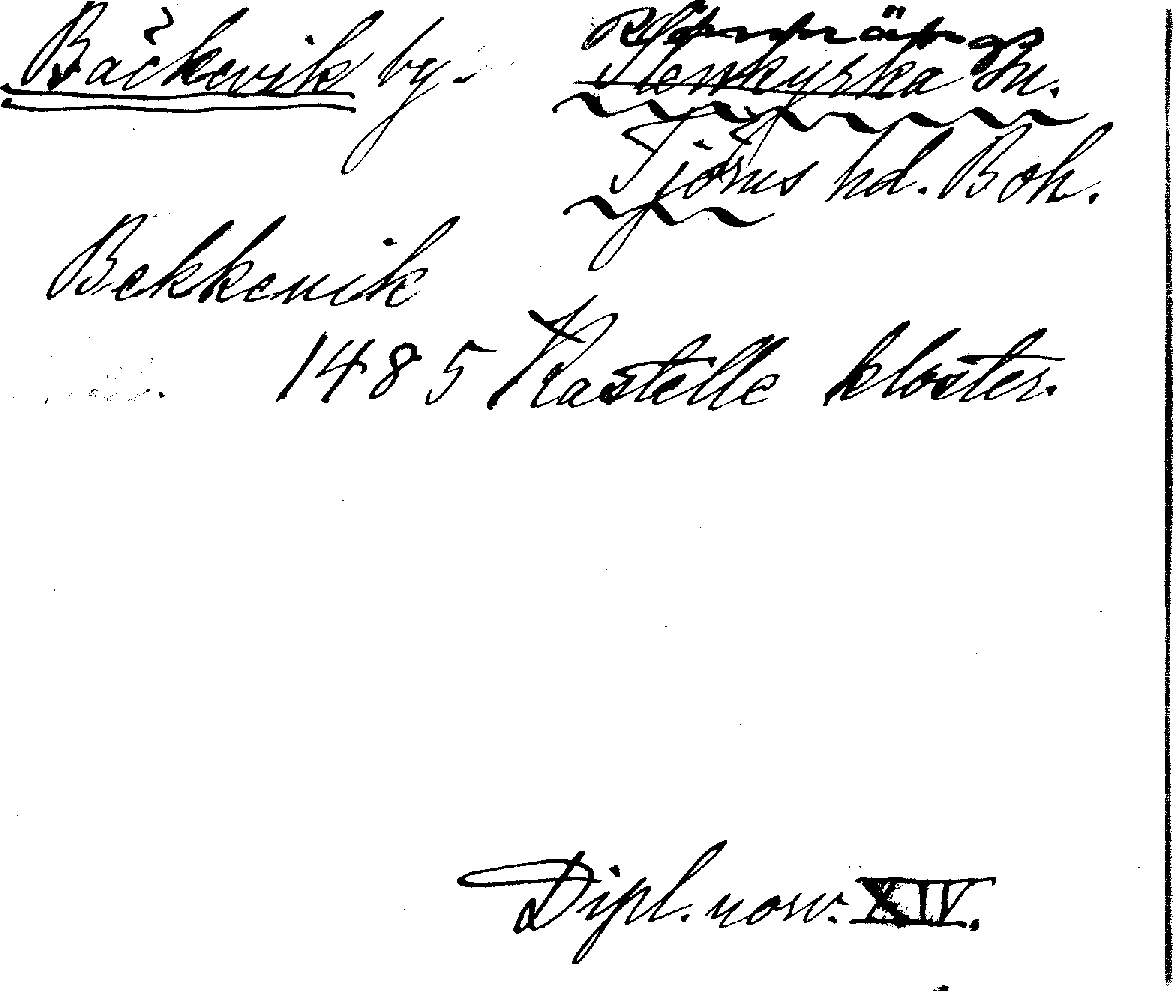 Rönnängs
Bäckevik by. Stenkyrka sn.
Tjörns hd. Boh.
Bekkeuik
1485 Kastelle kloster.
Dipl. norv. XIV.